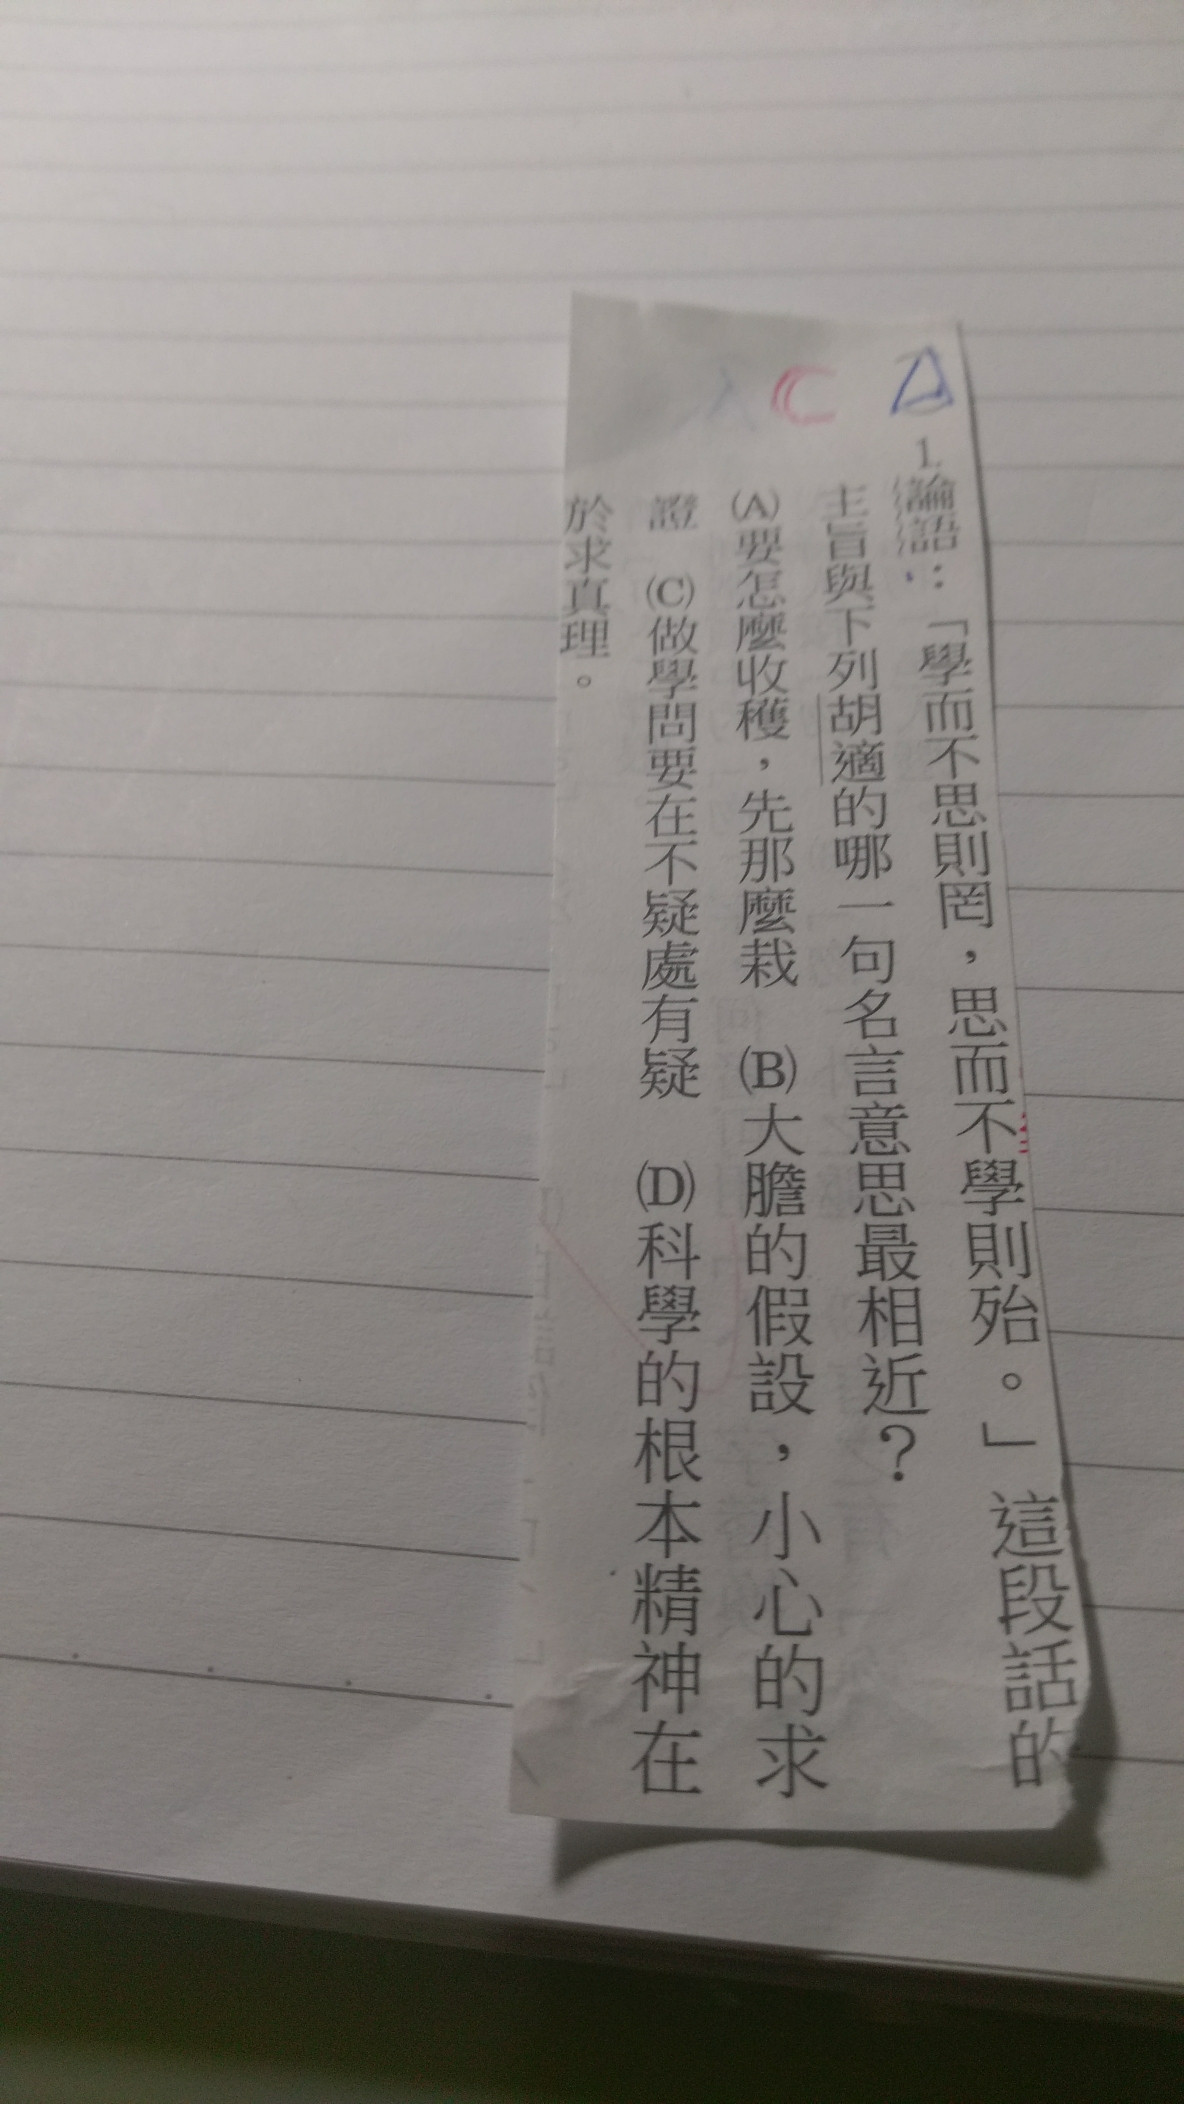 1.論語：「學而不思則罔，思而不學則殆。」這段話的
主旨與下列胡適的哪一句名言意思最相近？
(A)要怎麼收穫，先那麼栽　(B)大膽的假設，小心的求
證　(C)做學問要在不疑處有疑　(D)科學的根本精神在
於求真理。
C